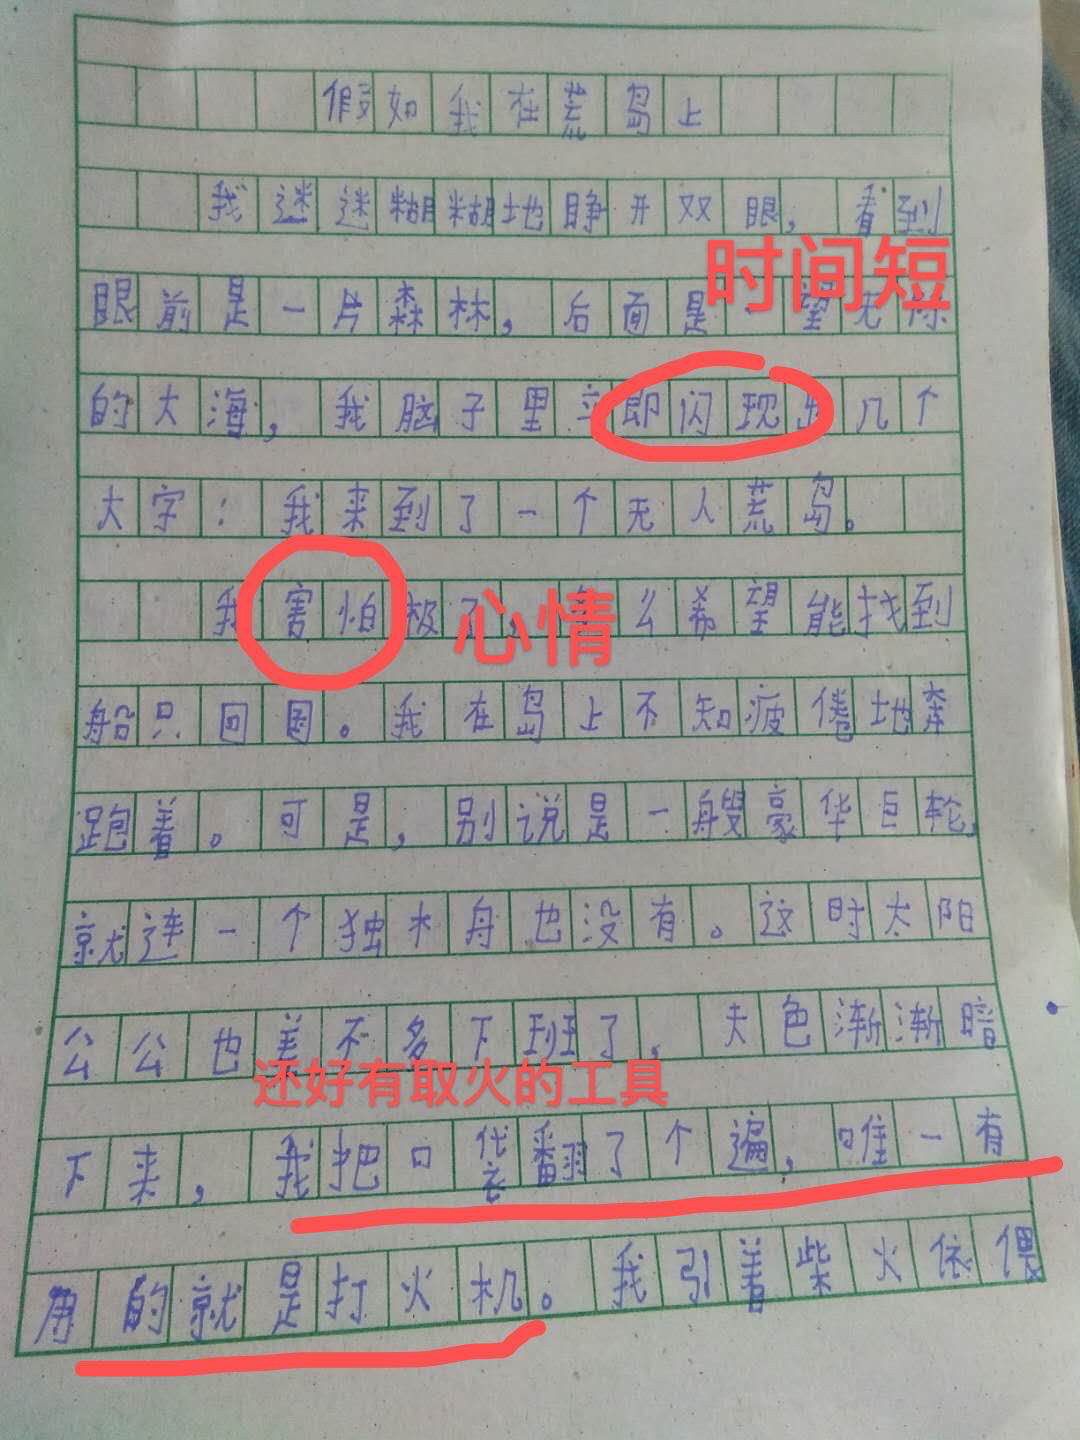 假如我在荒岛上
我迷迷糊糊地睁开双眼，看到
时间短
眼前是一片森林，后面是一望无际
的大海，我脑子里立即闪现出几个
大字：我来到了一个无人荒岛。
我害怕极了，多么希望能找到
心情
船只回国。我在岛上不知疲倦地奔
跑着。可是，别说是一艘豪华巨轮，
就连一个独木舟也没有。这时太阳
公公也差不多下班了，天色渐渐暗
还好有取火的工具
下来，我把口袋翻了个遍，唯一有
用的就是打火机。我引着柴火依偎